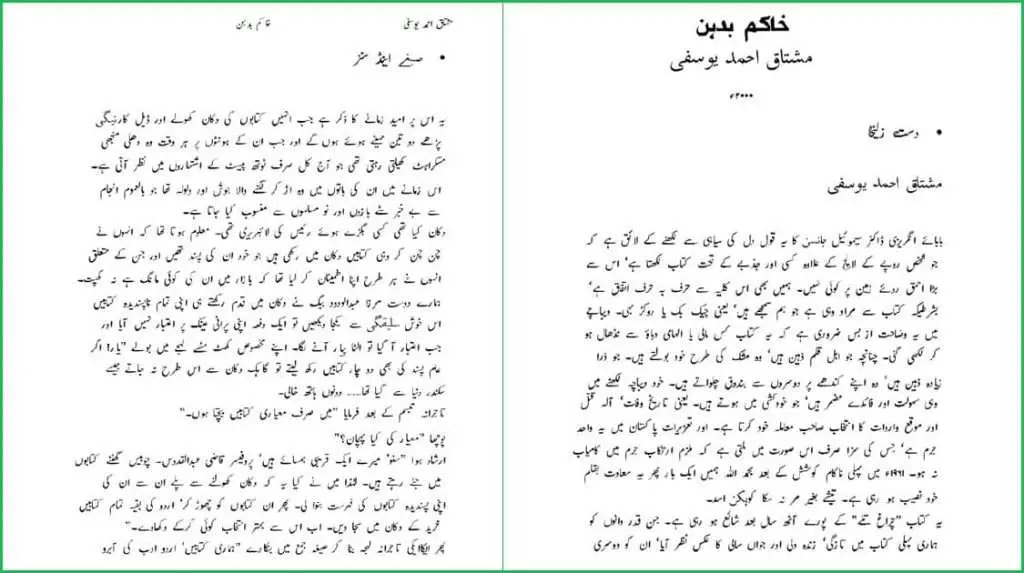 خاکم بدہن
مشتاق احمد یوسفی
۲۰۰۰ء
• دست زلیخا
مشتاق احمد یوسفی
بابائے انگریزی ڈاکٹر سیموئیل جانسن کا یہ قول دل کی سیاہی سے لکھنے کے لائق ہے کہ
جو شخص روپے کے لالچ کے علاوہ کسی اور جذبے کے تحت کتاب لکھتا ہے' اس سے
بڑا احمق روئے زمین پر کوئی نہیں۔ ہمیں بھی اس کلیہ سے حرف بہ حرف اتفاق ہے'
بشرطیکہ کتاب سے مراد وہی ہے جو ہم سمجھے ہیں' یعنی چیک بک یا روکڑ بہی۔ دیباچے
میں یہ وضاحت از بس ضروری ہے کہ یہ کتاب کس مالی یا الہامی دباؤ سے نڈھال ہو
کر لکھی گئی۔ چنانچہ جو اہل قلم ذہین ہیں' وہ مشک کی طرح خود بولتے ہیں۔ جو ذرا
زیادہ ذہین ہیں' وہ اپنے کندھے پر دوسروں سے بندوق چلواتے ہیں۔ خود دیباچہ لکھنے میں
وہی سہولت اور فائدے مضمر ہیں' جو خودکشی میں ہوتے ہیں۔ یعنی تاریخ وفات' آلہ قتل
اور موقع واردات کا انتخاب صاحب معاملہ خود کرتا ہے۔ اور تعزیرات پاکستان میں یہ واحد
جرم ہے' جس کی سزا صرف اس صورت میں ملتی ہے کہ ملزم ارتکاب جرم میں کامیاب
نہ ہو۔ ۱۹۶۱ء میں پہلی ناکام کوشش کے بعد بحمد اللہ ہمیں ایک بار پھر یہ سعادت بقلم
خود نصیب ہو رہی ہے۔ تیشے بغیر مر نہ سکا کوہکن اسد۔
یہ کتاب "چراغ تلے" کے پورے آٹھ سال بعد شائع ہو رہی ہے۔ جن قدر دانوں کو
ہماری پہلی کتاب میں تازگی' زندہ دلی اور جواں سالی کا عکس نظر آیا' ان کو دوسری
مشتاق احمد یوسفی
خاکم بدہن
• صبغے اینڈ سنز
یہ اس پر امید زمانے کا ذکر ہے جب انہیں کتابوں کی دکان کھولے اور ڈیل کارنیگی
پڑھے دو تین مہینے ہوئے ہوں گے اور جب ان کے ہونٹوں پر ہر وقت وہ دھلی منجھی
مسکراہٹ کھیلتی رہتی تھی جو آج کل صرف ٹوتھ پیسٹ کے اشتہاروں میں نظر آتی ہے۔
اس زمانے میں ان کی باتوں میں وہ اڑ کر لگنے والا جوش اور ولولہ تھا جو بالعموم انجام
سے بے خبر سٹے بازوں اور نو مسلموں سے منسوب کیا جاتا ہے۔
دکان کیا تھی کسی بگڑے ہوئے رئیس کی لائبریری تھی۔ معلوم ہوتا تھا کہ انہوں نے
چن چن کر وہی کتابیں دکان میں رکھی ہیں جو خود ان کی پسند تھیں اور جن کے متعلق
انہوں نے ہر طرح اپنا اطمینان کر لیا تھا کہ بازار میں ان کی کوئی مانگ ہے نہ کھپت۔
ہمارے دوست مرزا عبدالودود بیگ نے دکان میں قدم رکھتے ہی اپنی تمام ناپسندیدہ کتابیں
اس خوش سلیقگی سے یکجا دیکھیں تو ایک دفعہ اپنی پرانی عینک پر اعتبار نہیں آیا اور
جب اعتبار آ گیا تو الٹا پیار آنے لگا۔ اپنے مخصوص کھٹ مٹھے لہجے میں بولے "یار! اگر
عام پسند کی بھی دو چار کتابیں رکھ لیتے تو گاہک دکان سے اس طرح نہ جاتے جیسے
سکندر دنیا سے گیا تھا۔۔۔۔ دونوں ہاتھ خالی۔
تاجرانہ تبسم کے بعد فرمایا "میں صرف معیاری کتابیں بیچتا ہوں۔"
پوچھا "معیار کی کیا پہچان؟"
ارشاد ہوا "سنو' میرے ایک قریبی ہمسائے ہیں' پروفیسر قاضی عبدالقدوس۔ چوبیس گھنٹے کتابوں
میں جٹے رہتے ہیں۔ لہٰذا میں نے کیا یہ کہ دکان کھولنے سے پہلے ان سے ان کی
اپنی پسندیدہ کتابوں کی فہرست بنوا لی۔ پھر ان کتابوں کو چھوڑ کر' اردو کی بقیہ تمام کتابیں
خرید کے دکان میں سجا دیں۔ اب اس سے بہتر انتخاب کوئی کرکے دکھادے۔"
پھر ایکاایکی تاجرانہ لہجہ بنا کر صیغہ جمع میں ہنکارے "ہماری کتابیں' اردو ادب کی آبرو